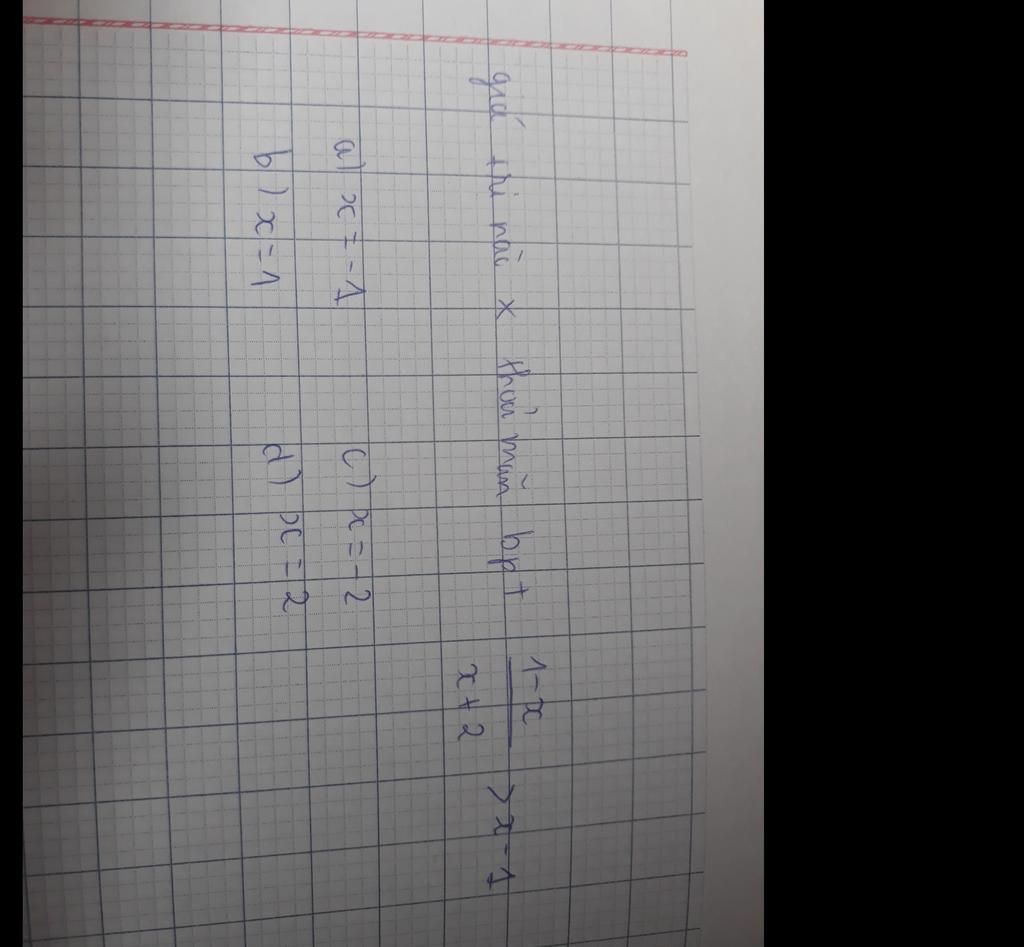 giá trị nào x thoả mãn bpt \frac{1-x}{x+2} > x-1
a) x = -1 c) x = -2
b) x = 1 d) x = 2